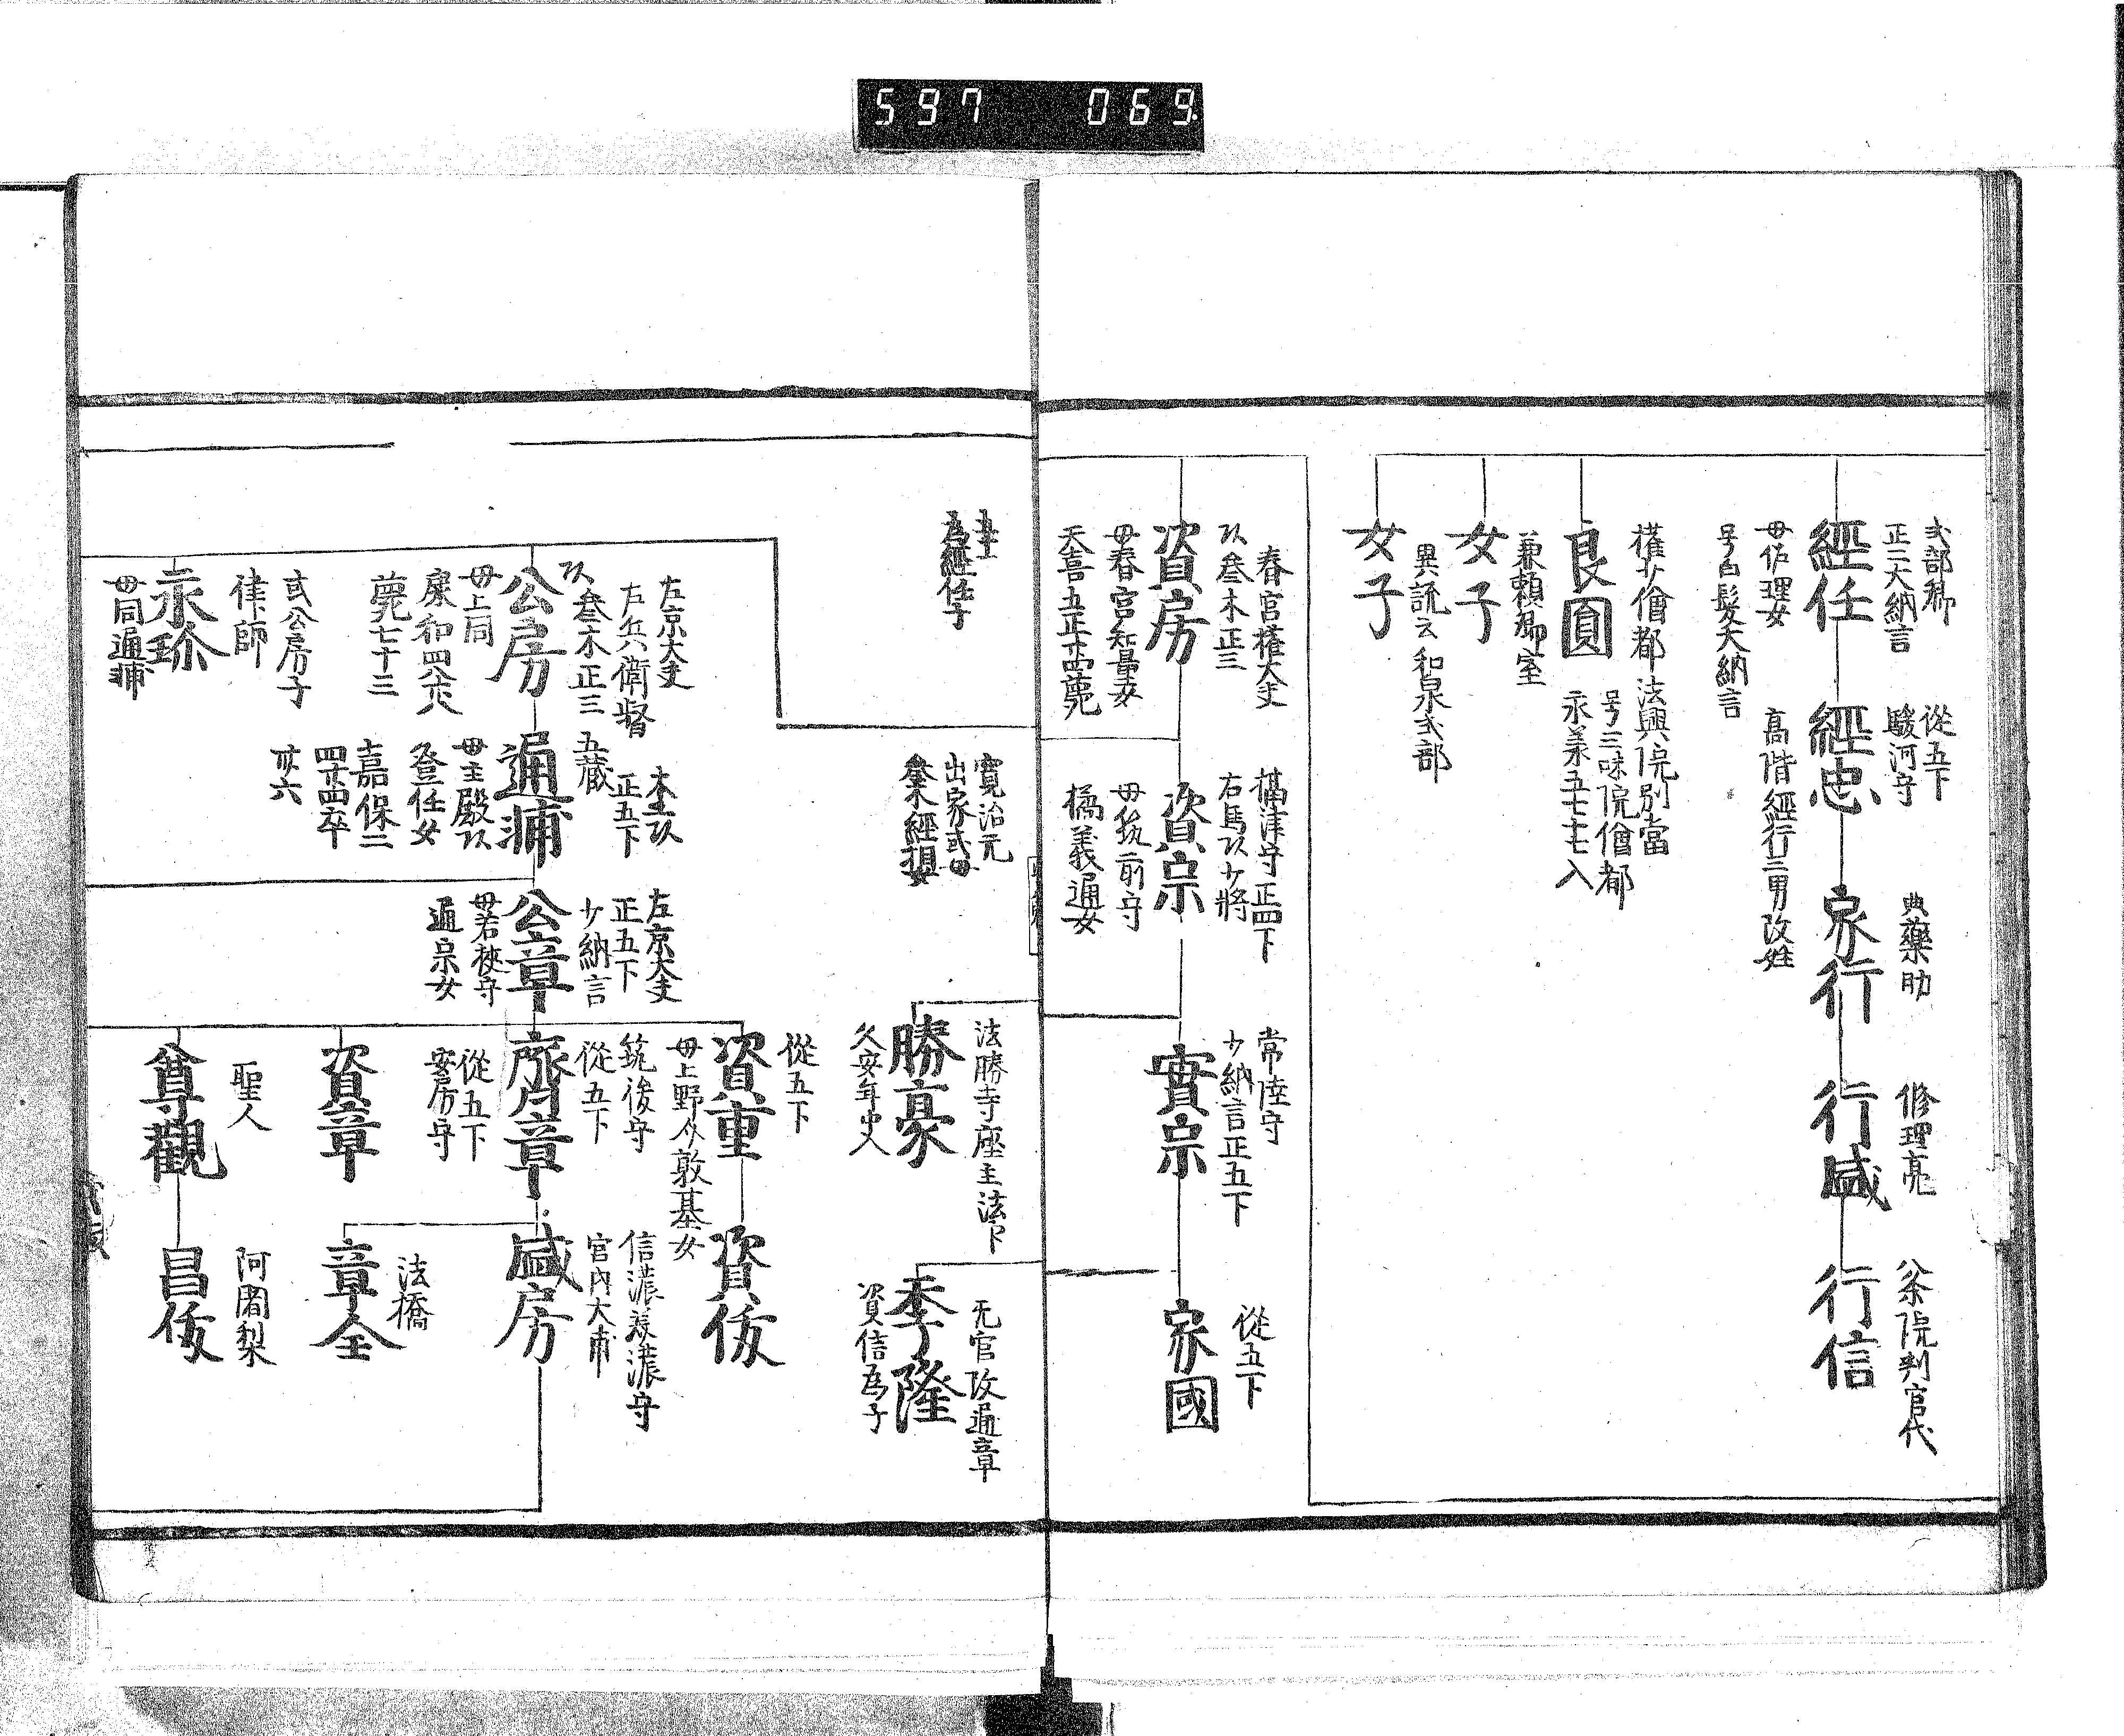 597 069
式部卿
正二大納言
經任
母佐理女
号白髮大納言
從五下
駿河守
經忠
高階經行二男改姓
典藥助
家行
修理亮
行盛
公茶院判官代
行信
權少僧都 法興院別當
良圓
号三昧院僧都
永義五七七入
兼頼卿室
女子
異説云和泉式部
女子
春宮權大夫
以參木正三
資房
母春宮知量女
天喜五正廿四薨
攝津守正四下
右馬以少將
資宗
母筑前守
橘義通女
常陸守
少納言正五下
實宗
從五下
家國
為經任子
寬治元
出家或母
參木經損女
法勝寺座主法下
勝豪
久安年中入
无官改通章
季隆
資信為子
左京大夫
左兵衛督
以參木正三
公房
母上同
康和四八六
薨七十三
木工以
正五下
五蔵
通輔
母主殿以
登任女
嘉保二
四廿四卒
卅六
左京大夫
正五下
少納言
公章
母若狹守
通宗女
從五下
資重
母上野介敦基女
資俊
筑後守
從五下
齊章
信濃美濃守
宮内大甫
盛房
從五下
安房守
資章
法橋
章全
聖人
尊觀
阿闍梨
昌俊
或公房子
律師
永珍
母同通輔